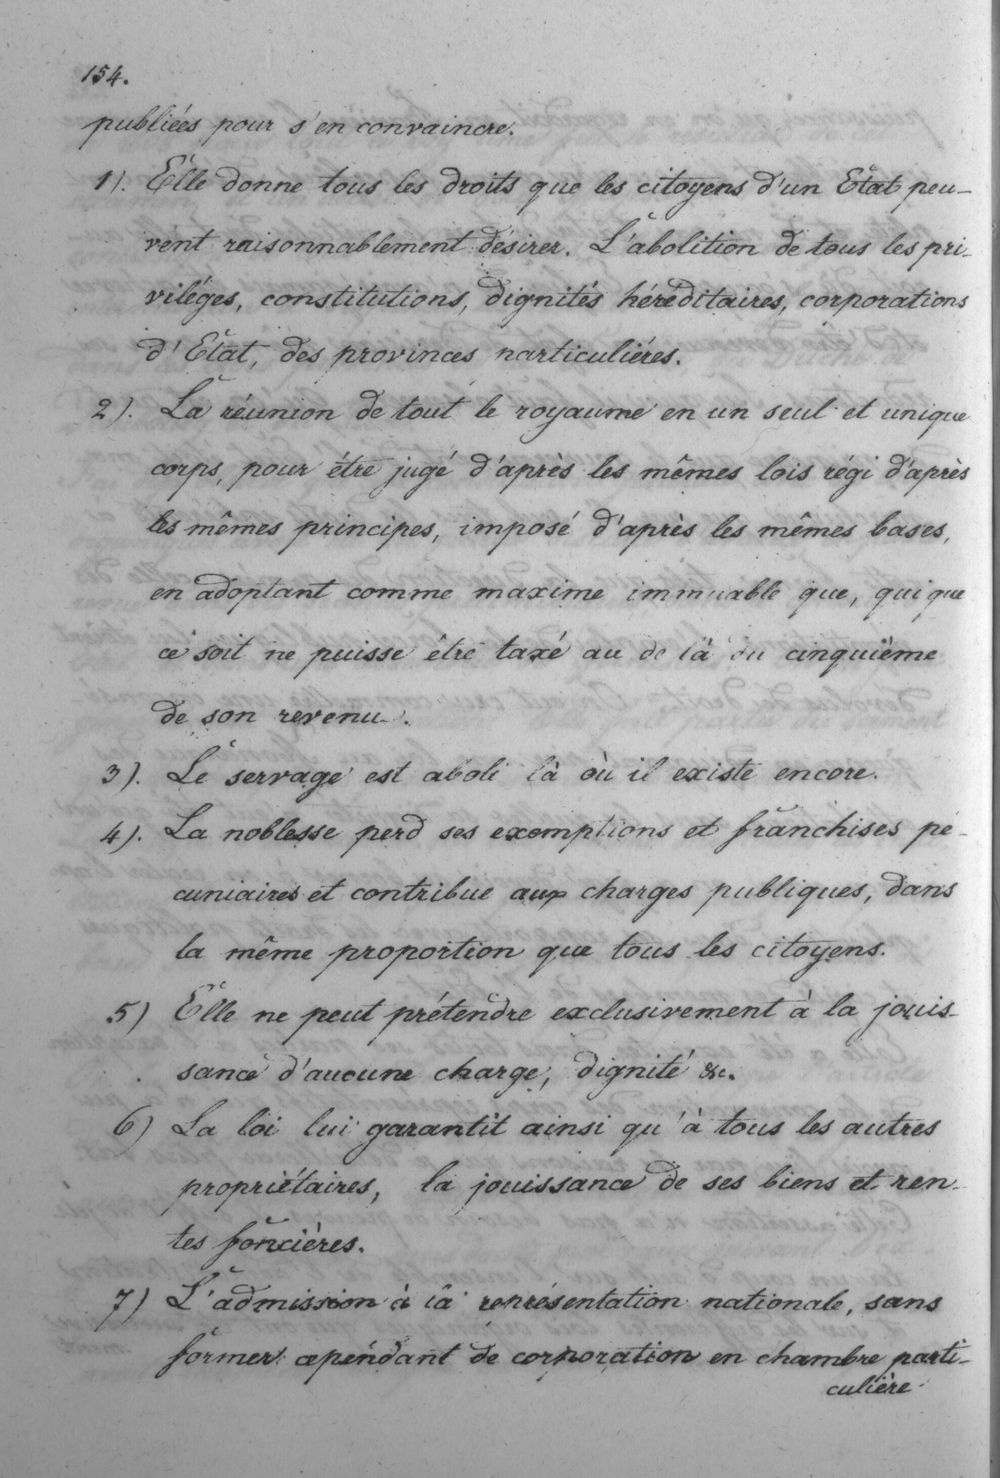 154.
publiées pour s'en convaincre.
1). Elle donne tous les droits que les citoyens d'un Etat peu-
vent raisonnablement désirer. L'abolition de tous les pri-
viléges, constitutions, dignités héréditaires, corporations
d'Etat, des provinces particuliéres.
2). La réunion de tout le royaume en un seul et unique
corps, pour être jugé d'après les mêmes lois régi d'après
les mêmes principes, imposé d'après les mêmes bases,
en adoptant comme maxime immuable que, qui que
ce soit ne puisse être taxé au de là du cinquième
de son revenu.
3). Le servage est aboli là où il existe encore.
4). La noblesse perd ses exemptions et franchises pé-
cuniaires et contribue aux charges publiques, dans
la même proportion que tous les citoyens.
5) Elle ne peut prétendre exclusivement à la jouis-
sance d'aucune charge, dignité &c.
6) La loi lui garantit ainsi qu'à tous les autres
propriétaires, la jouissance de ses biens et ren-
tes foncières.
7) L'admission à la représentation nationale, sans
former cependant de corporation en chambre parti-
culière